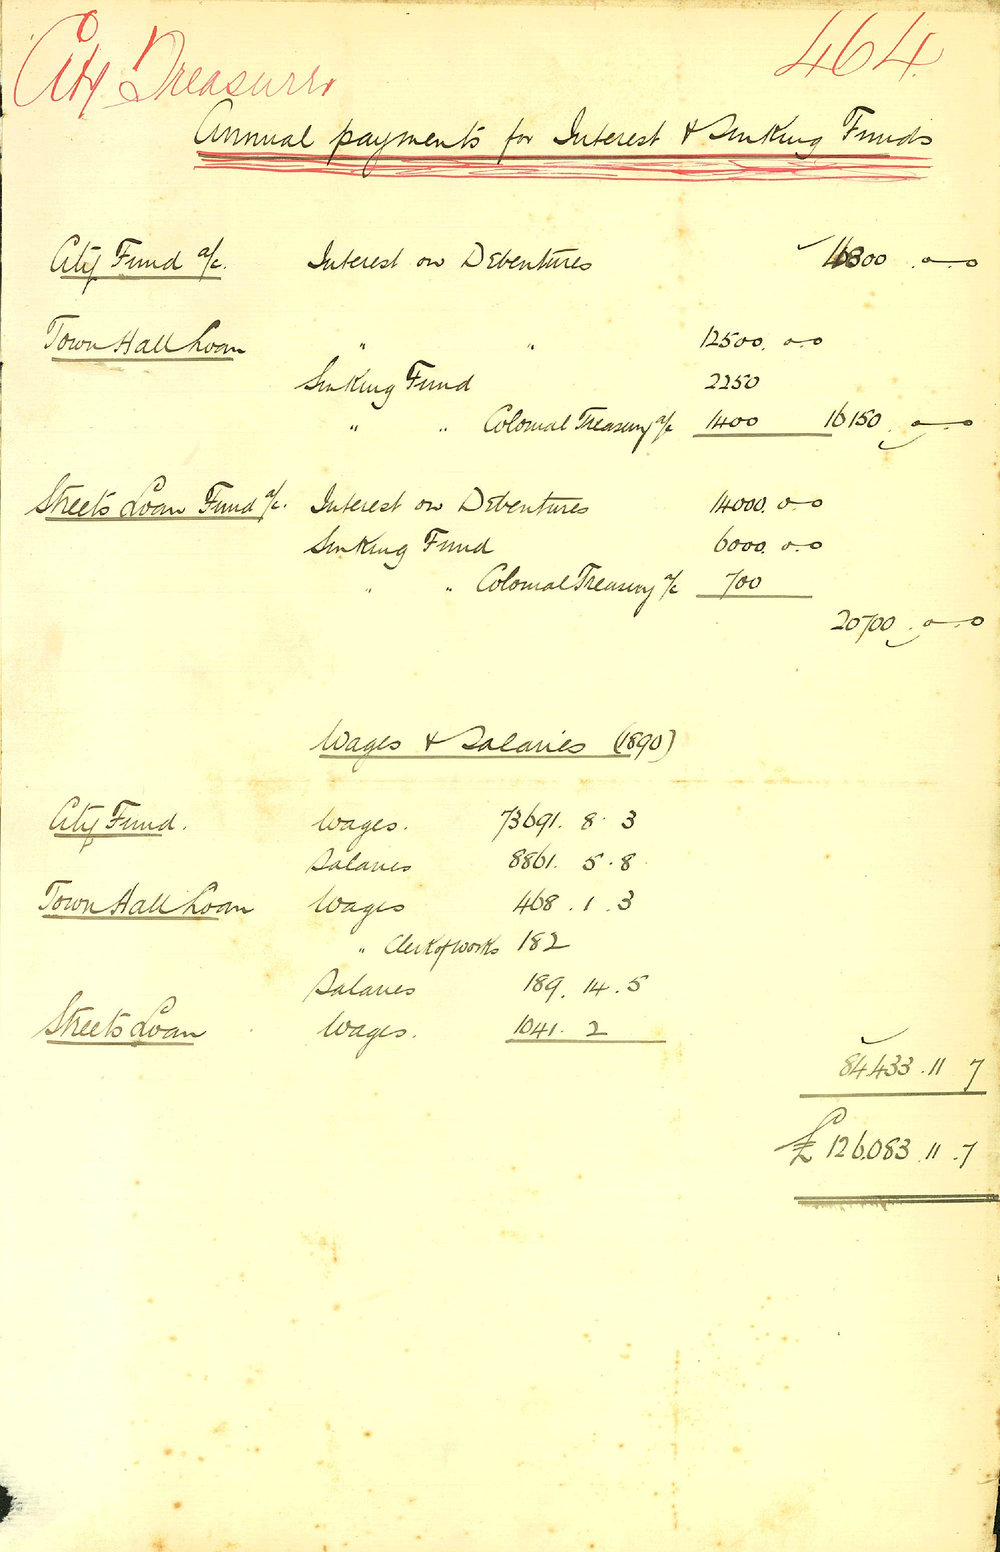 City Treasurer 464
Annual payments for Interest & Sinking Funds
City Fund a/c. Interest on Debentures 4800 . o - . o
Town Hall Loan " " 12500. o. o
Sinking Fund 2250
" " Colonial Treasury a/c 1400 16150 . o - . o
Streets Loan Fund a/c. Interest on Debentures 14000. o. o
Sinking Fund 6000. o. o
" " Colonial Treasury a/c 700
20700 . o - . o
Wages & Salaries (1890)
City Fund. Wages. 73691. 8. 3
Salaries 8861. 5. 8
Town Hall Loan Wages 468. 1. 3
" Clerk of works 182
Salaries 189. 14. 5
Streets Loan Wages. 1041. 2
84433. 11 7
£ 126,083. 11. 7